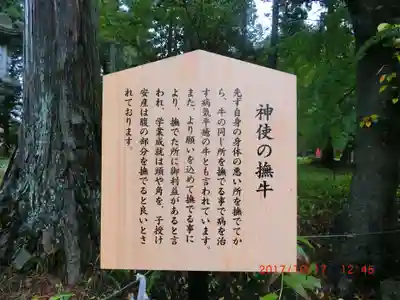 神使の撫牛
先ず自身の身体の悪い所を撫でてか
ら、牛の同じ所を撫でる事で病を治
す病気平癒の牛とも言われています。
また、より願いを込めて撫でる事に
より、撫でた所に御利益があると言
われ、学業成就は頭や角を、子授け
安産は腹の部分を撫でると良いとさ
れております。
2017/10/17 12:45